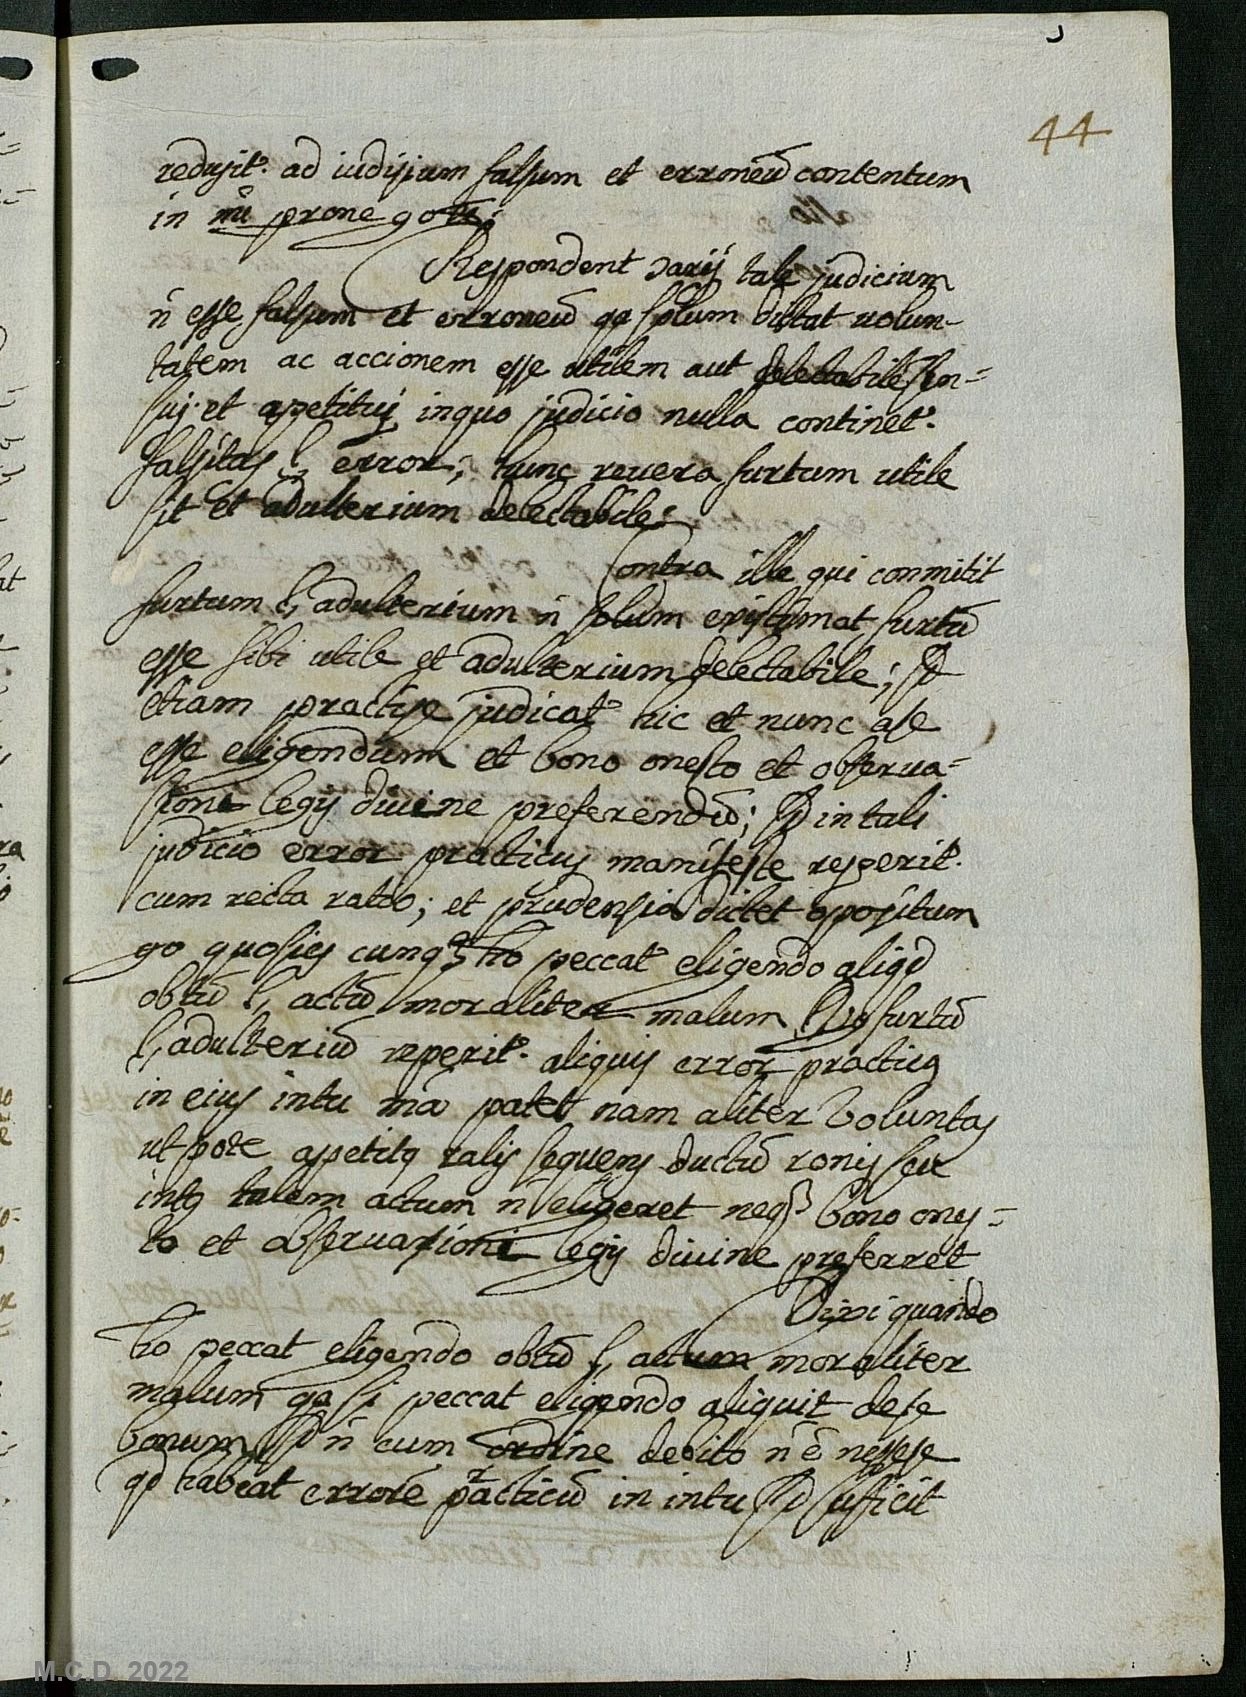 44
redusit.r ad iudisium falsum et erroneũ contentum
in prone go
Respondent tale judicium
ñ esse falsum et erroneũ qa solum dictat volun-
tatem ac accionem esse utilem aut delectabilẽ sen-
sui et apetitui inquo judicio nulla continet.r
falsitas l, error; tunc revera furtum utile
sit et adulterium delectabile;
Contra ille qui conmitit
furtum l, adulterium ñ solum existimat furtũ
esse sibi utile et adulterium delectabile; sd
etiam practise judicat hic et nunc a se
esse eligendum et bono onesto et observa=
sioni legis divine preferendũ; sd in tali
judicio error practicus manifeste resperit.r
cum recta ratio; et prudensia dictet opositum
go quosies cunq3 ho peccat eligendo aliqd
obtũ l, actũ moraliter malum furtũ
l, adulteriũ reperit.r aliquis error practicus
in eius intu ma patet nam aliter voluntas
ut pote apetitus ralis sequens ductũ ronis seu
ints talem actum ñ eligeret neq3 bono ones=
to et observasioni legis divine preferret
Dixi quando
ho peccat eligendo obtũ l, actum moraliter
malum qa si peccat eligendo aliquit de se
bonum sd ñ cum ordine debito ñ ẽ nessese
qd habeat errorẽ practicũ in intu sd suficit
M.C.D. 2022